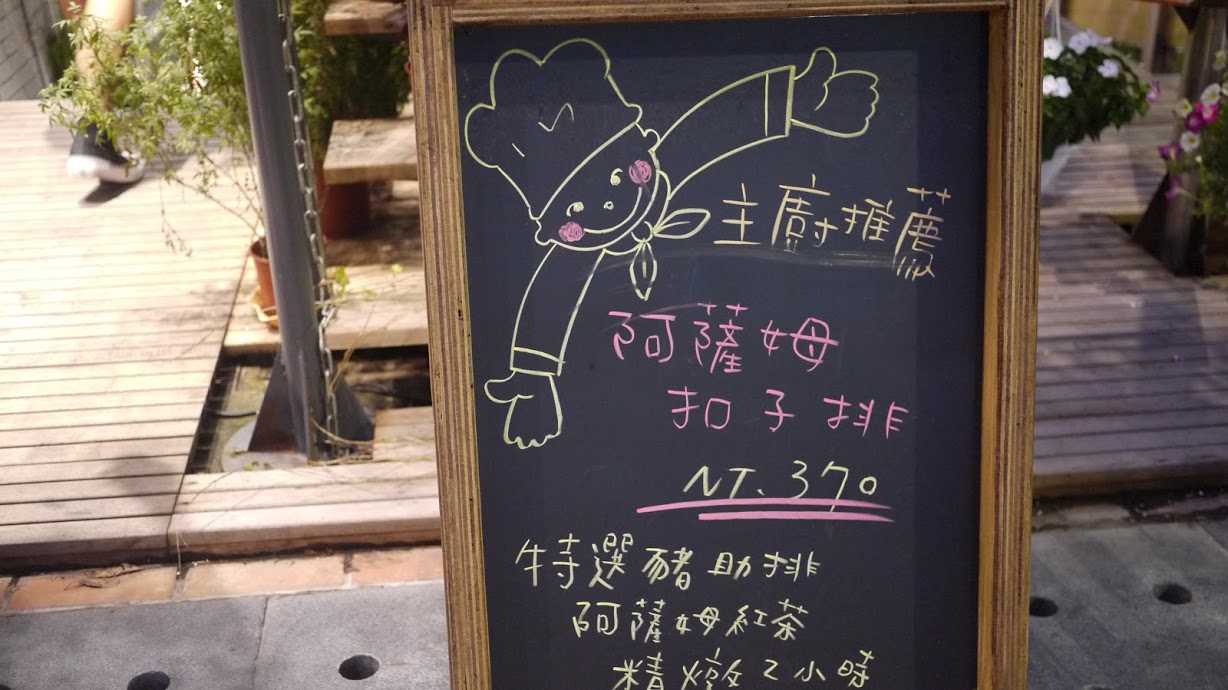 主廚推薦
阿薩姆
扣子排
NT. 370
特選豬助排
阿薩姆紅茶
精燉2小時